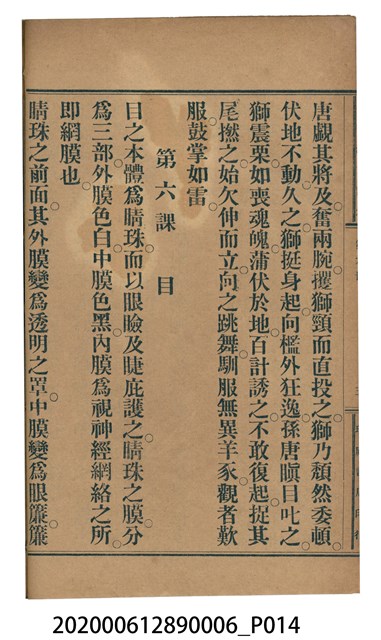 唐覷其將及奮兩腕攫獅頸而直投之獅乃頹然委頓
伏地不動久之獅挺身起向檻外狂逸孫唐瞋目叱之
獅震栗如喪魂魄蒲伏於地百計誘之不敢復起捉其
尾撚之始欠伸而立向之跳舞馴服無異羊豕觀者歎
服鼓掌如雷
第六課 目
目之本體爲睛珠而以眼瞼及睫庇護之睛珠之膜分
爲三部外膜色白中膜色黑內膜爲視神經網絡之所
即網膜也
睛珠之前面其外膜變爲透明之罩中膜變爲眼簾簾
202000612890006_P014